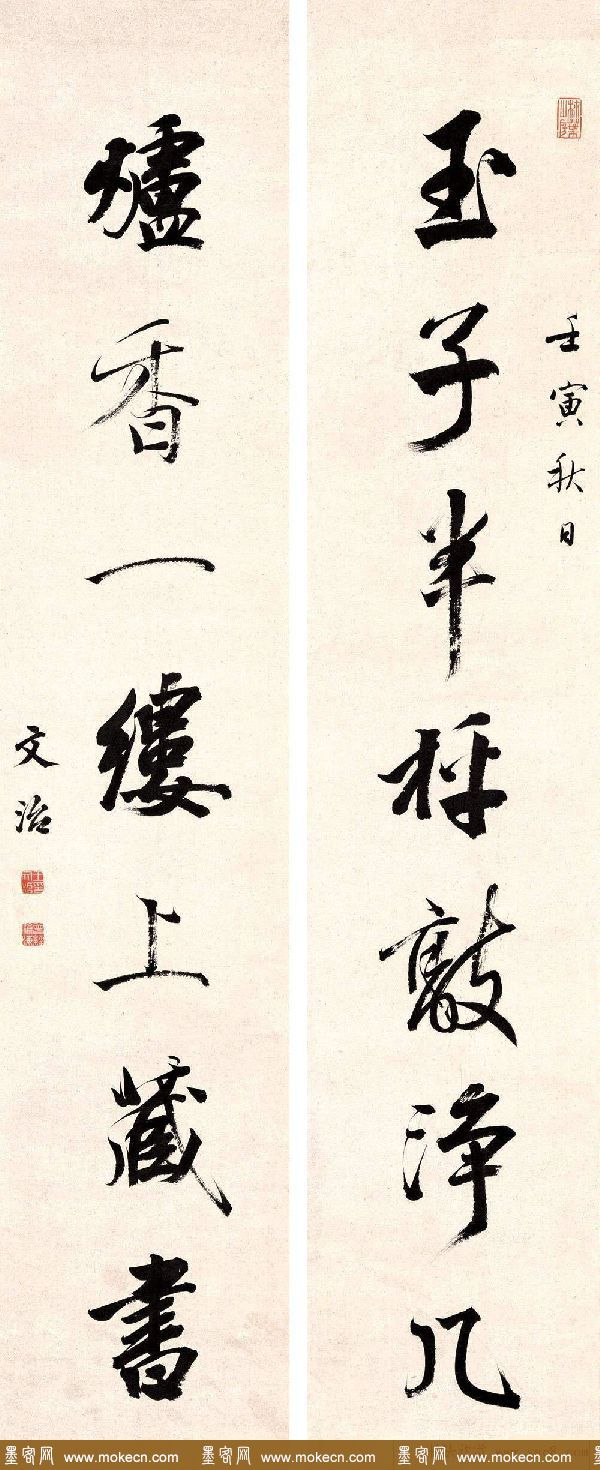 壬寅秋日
玉子半枰敲淨几
爐香一縷上藏書
文治
墨客网 www.mokecn.com 墨客网 www.mokecn.com 墨客网 www.mokecn.com